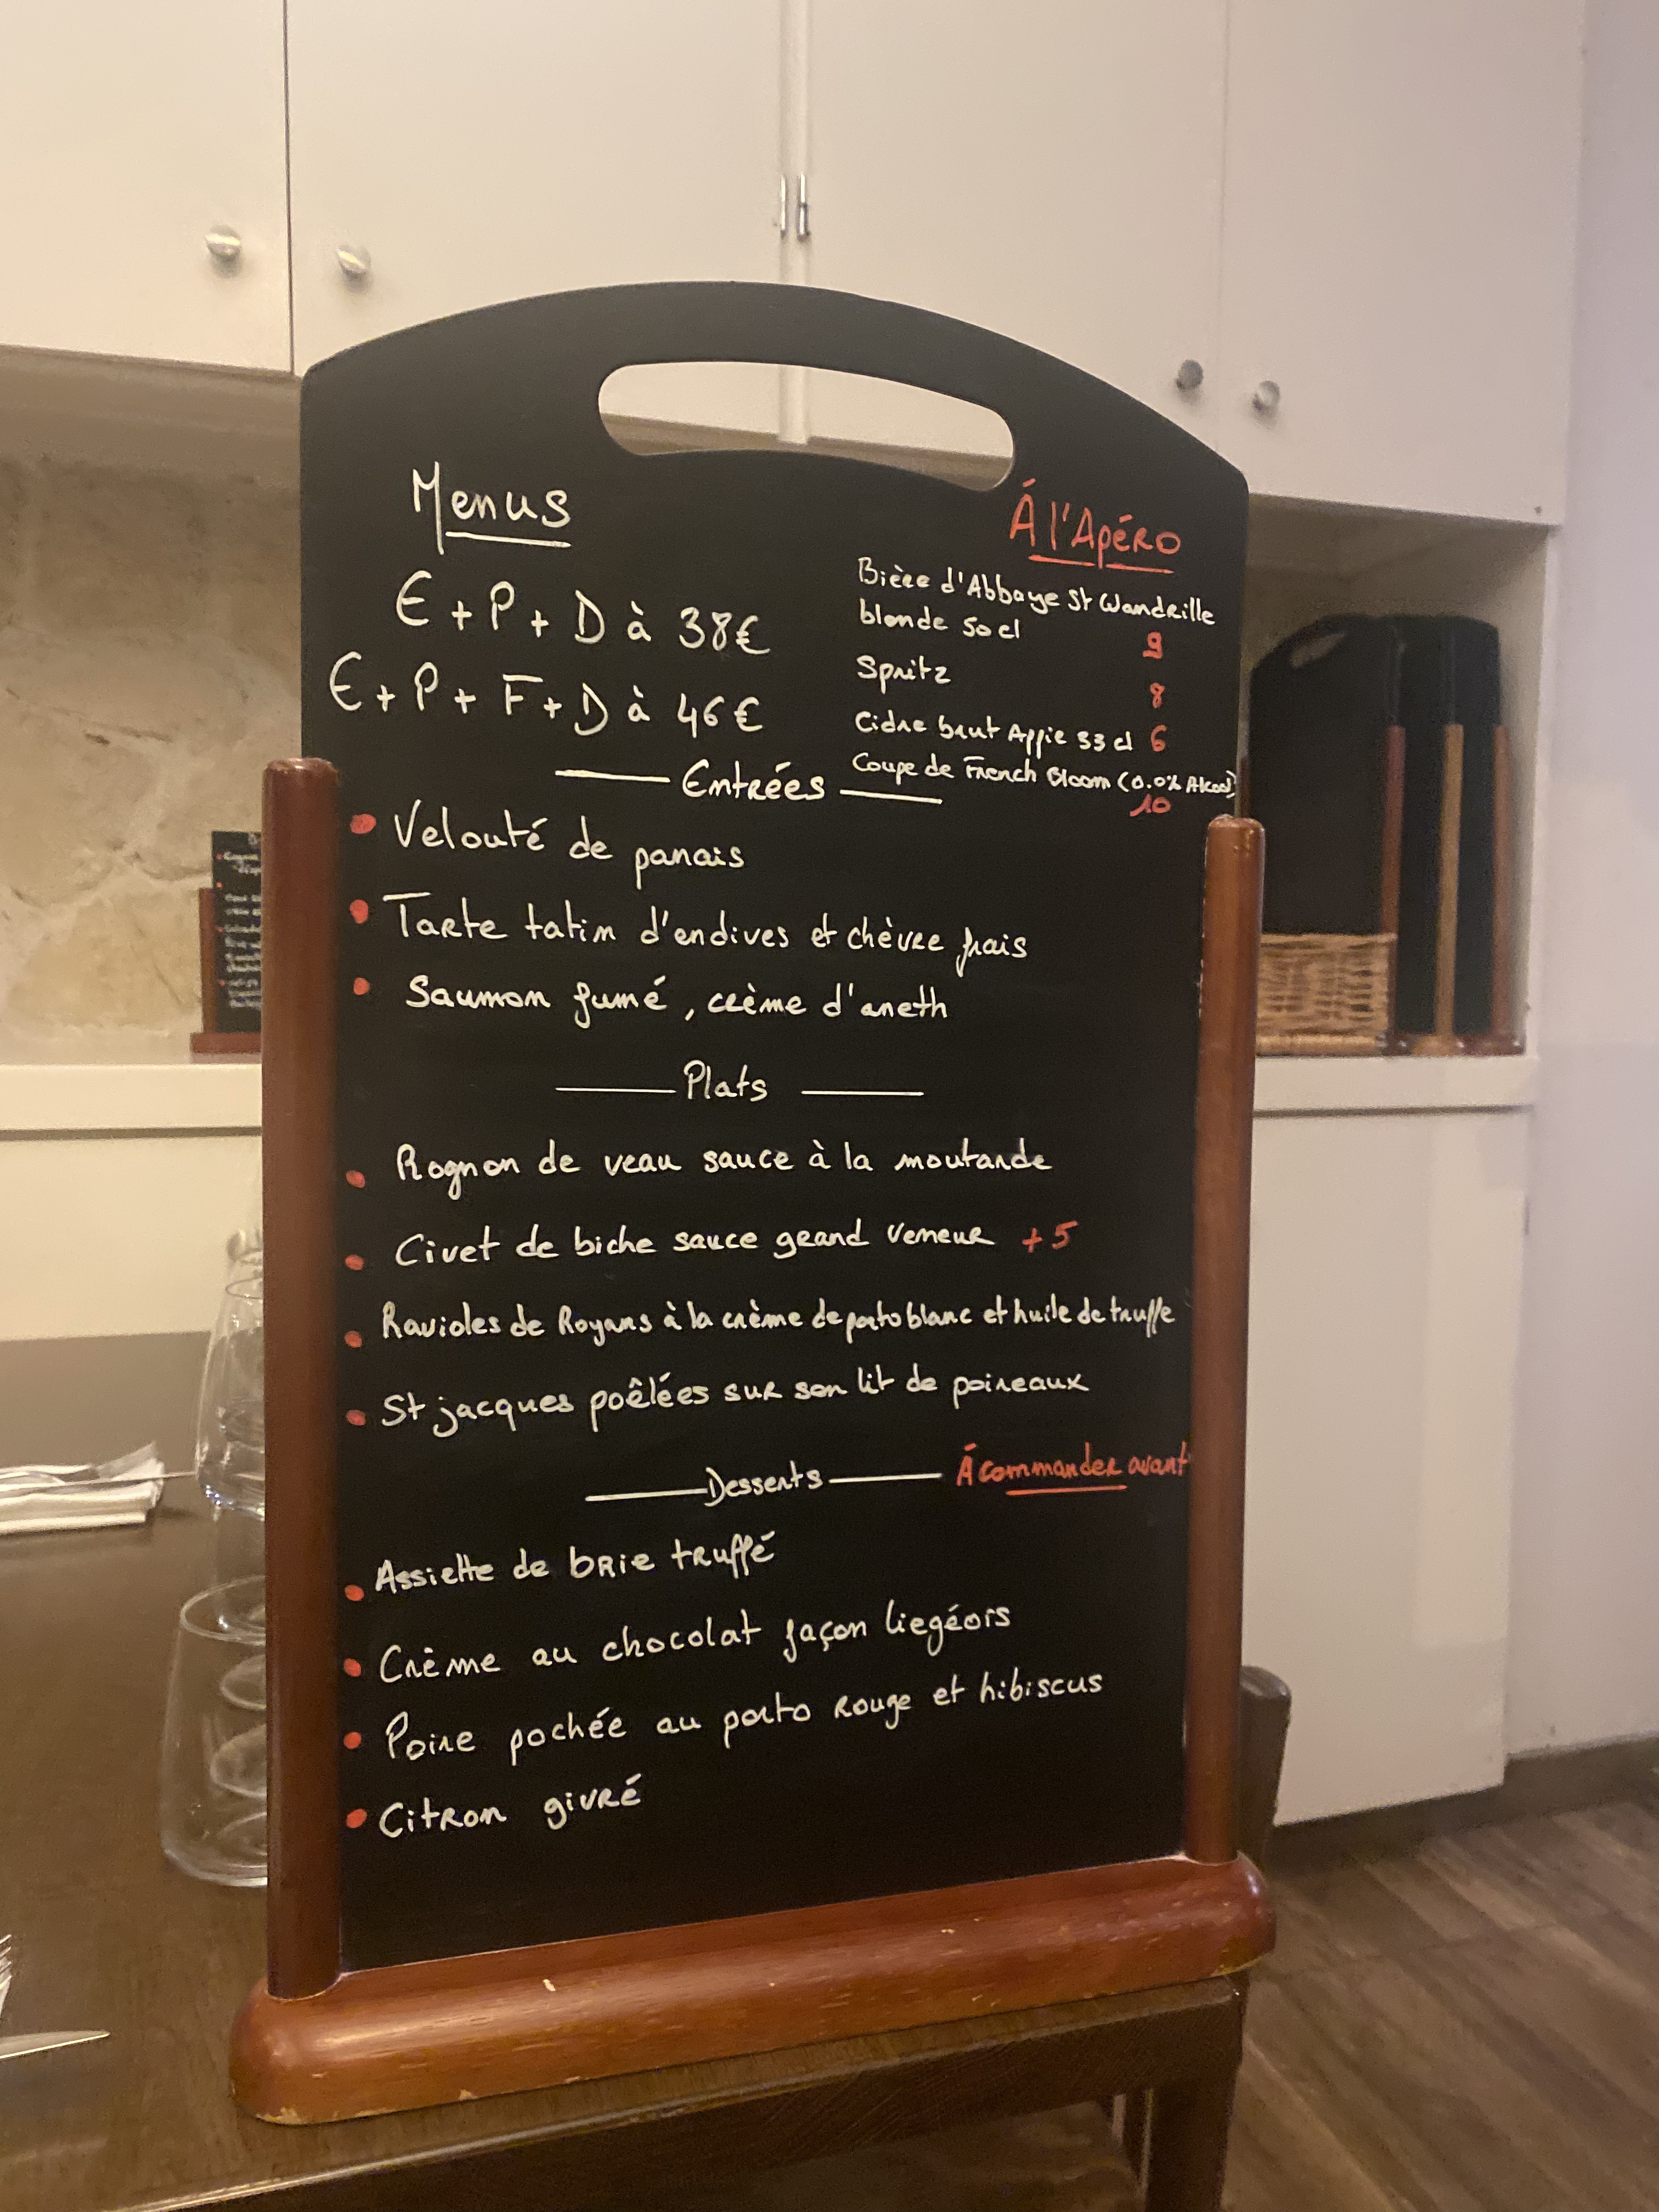 Menus
E + P + D à 38€
E + P + F + D à 46€
Á l'Apéro
Bière d'Abbaye St Wandrille
blonde 50 cl
9
Spritz
8
Cidre brut Appie 33 cl 6
Coupe de French Bloom (0.0% Alcool)
10
Entrées
• Velouté de panais
• Tarte tatin d'endives et chèvre frais
• Saumon fumé, crème d'aneth
Plats
• Rognon de veau sauce à la moutarde
• Civet de biche sauce grand veneur + 5
• Ravioles de Royans à la crème de porto blanc et huile de truffe
• St jacques poêlées sur son lit de poireaux
Desserts Á commander avant
• Assiette de brie truffé
• Crème au chocolat façon liegéois
• Poire pochée au porto rouge et hibiscus
• Citron givré